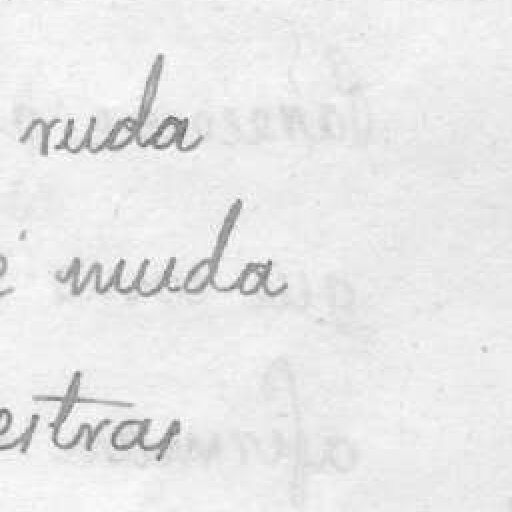 ruda
é muda
estras